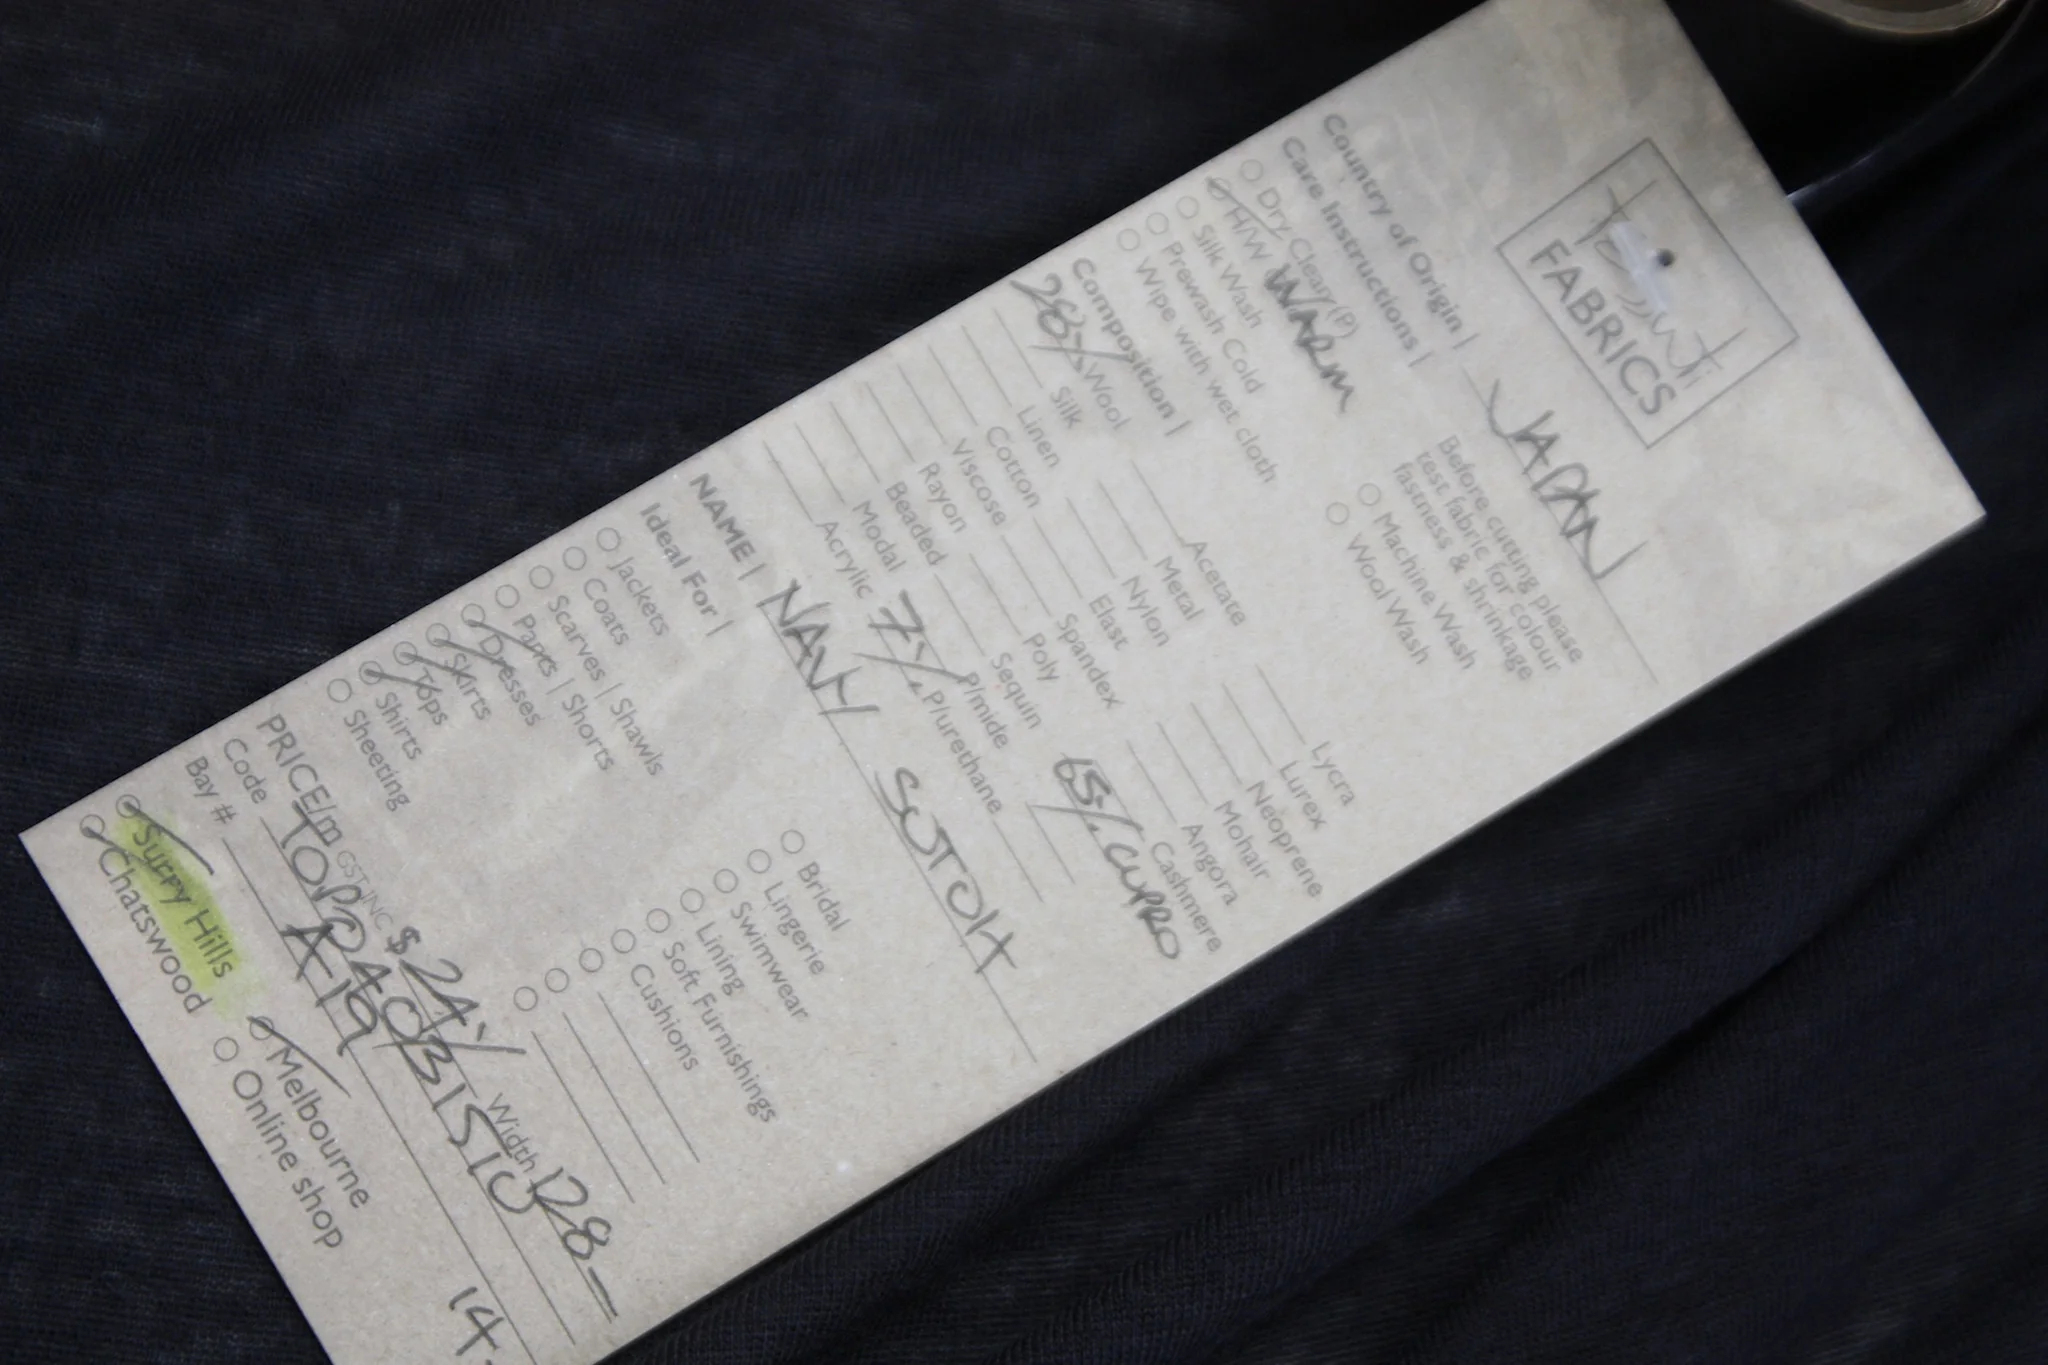 Tessuti
FABRICS
Country of Origin | JAPAN
Care Instructions |
Before cutting please
test fabric for colour
fastness & shrinkage
Dry Clean (P)
H/W WARM
Silk Wash
Prewash Cold
Wipe with wet cloth
Machine Wash
Wool Wash
Composition |
28% Wool
Silk
Linen
Cotton
Viscose
Rayon
Beaded
Modal
Acrylic
Acetate
Metal
Nylon
Elast
Spandex
Poly
Sequin
P/mide
7% P/urethane
Lycra
Lurex
Neoprene
Mohair
Angora
Cashmere
65% CUPRO
NAME | NAVY
Ideal For |
Jackets
Coats
Scarves | Shawls
Pants | Shorts
Dresses
Skirts
Tops
Shirts
Sheeting
Bridal
Lingerie
Swimwear
Lining
Soft Furnishings
Cushions
PRICE/m GST INC $ 24% Width 128-
Code
Bay # A-19
14.
Surry Hills
Chatswood
Melbourne
Online shop